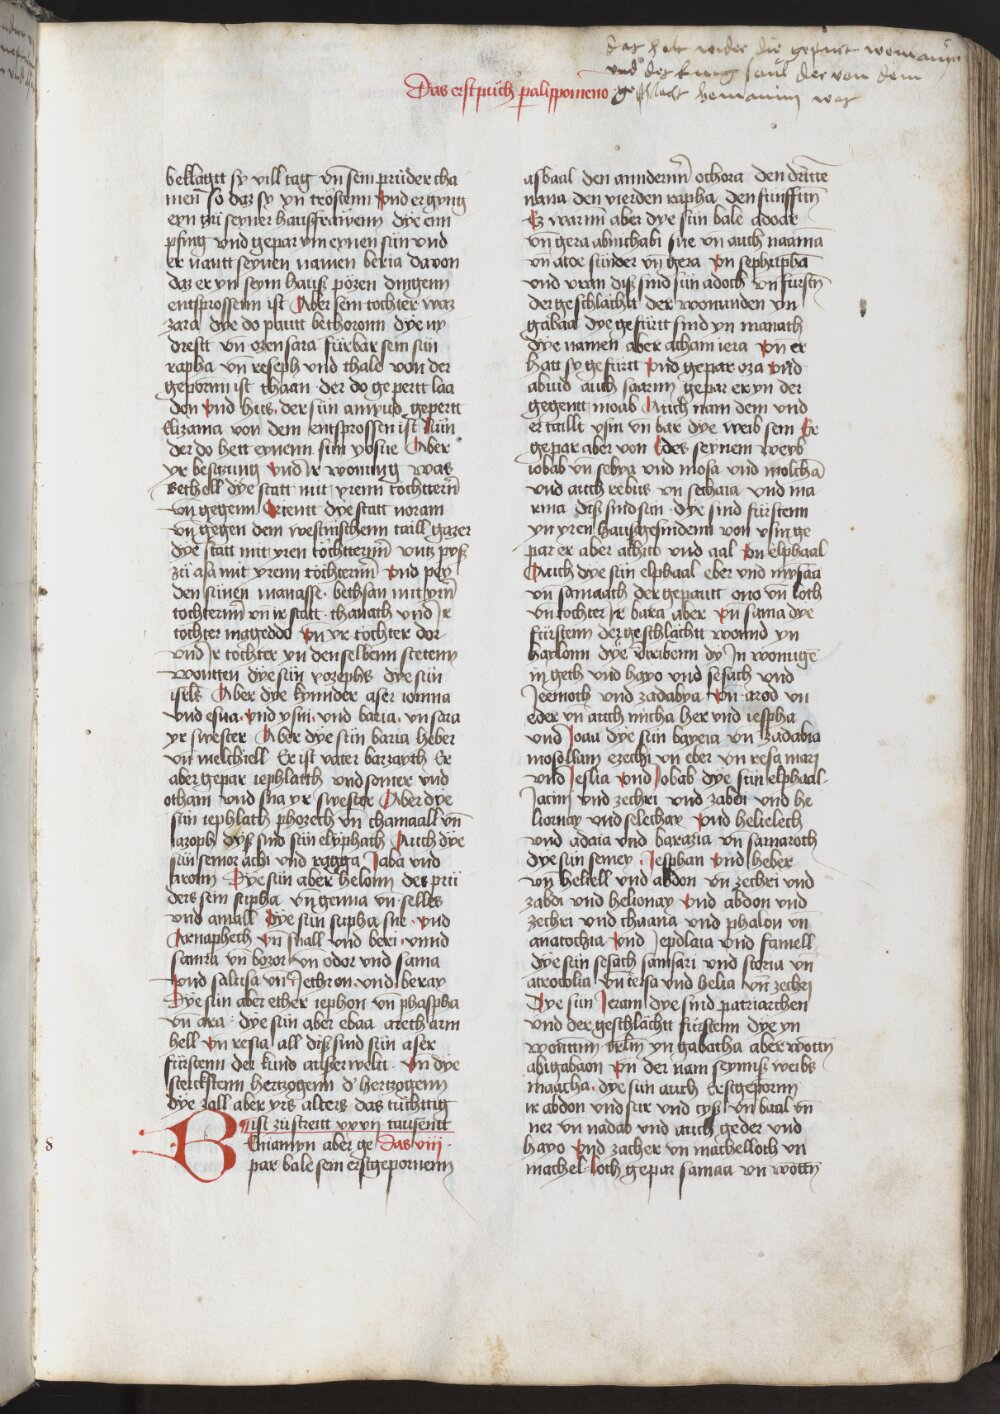 das hat wider die gepurt womanyn
vnd der kung saul der von dem
geschlacht bemanim war
Das erst puch paralippomeno
beklagtt sy vill tag vn̄ sein prüder cha
men so daz sy yn trösstenn Vnd er gyng
eyn zü seyner hausfrawenn dye enn
pfing vnd gepar ym eynen sün vnd
er nantt seynen namen beria da von
daz er yn seym hauß pözen dingenn
entsprossenn ist Aber sein tochter waz
zara dye do pautt bethoronn dye ny
drestt vn̄ ozensara fürbar sein sün
rapha vn̄ reseph vnd thale von der
gepornn ist thaan der do gepertt laa
don Vnd hus der sün amyud gepertt
Elizama von dem entsprossen ist Nun
der do hett eynenn sün yosue Aber
yr besitzung Vnd Ir wonung was
bethell dye statt mit yrenn tochternn̄
vn̄ gegenn Orientt dye statt noram
vn̄ gegen dem westnischenn taill gazer
dye statt mit yren tochternn̄ vntz pyß
zü asa mit yrenn töchternn̄ Vnd pey
den sünen manasse bethsan mit yrn̄
tochternn̄ vn̄ ir statt thanath vnd Ir
tochter mageddo Vn̄ yr tochter dor
vnd Ir tochter yn denselbenn stetenn
wontten dye sün yozephs dye sün
isrls Aber dye kynnder aser iomna
vnd esua Vnd ysui vnd baria vn̄ sara
yr swester Aber dye sün baria heber
vn̄ melchiell Er ist vater barzayth Er
aber gepar iephlatth vnd somer vnd
otham vnd sua yr swester Aber dye
sün iephlath phozech vn̄ chamaall vn̄
iazoph dyß sind sün elyphath Auch dye
sün semor achi vnd ragga Iaba vnd
aromn Dye sün aber helonn des prü
ders sein supha vn̄ gemna vn̄ selles
vnd amall Dye sün supha sue Vnd
Arnapheth Vn̄ suall vnd beri vnnd
samra vn̄ bozor vn̄ odor vnd sama
Vnd salusa vn̄ Iethron vnd beray
Dye sün aber ether iephon vn̄ phaspha
vn̄ ara dye sün aber ebaa areth ann
hell Vn̄ resia all diß sind sün aser
fürstenn der kund außerwelte Vn̄ dye
sterckstenn hertzogenn d' hertzogenn
dye zall aber yrs alters das tüchtig
ist zü streitt xxvi tausentt
Beniamyn aber ge Das viij
par bale sein erstgepornenn
8
asbaal den anndernn̄ othora den dritte
nana den vierden rapha den fünfftn̄
Ez warnn aber dye sün bale adoar
vn̄ gera abiuchabi sue vn̄ auch naama
vn̄ atoe sünder vn̄ gera Vn̄ sephupha
vnd vran diß sind sün adoth vn̄ fürstn̄
der geschlächtt der wonunden yn
gabaa dye gefürtt sind yn manath
dye namen aber acham iera Vn̄ er
hatt sy gefürtt Vnd gepar oza Vnd
abiud auch saarim gepar er yn der
gegentt moab Auch nam dem vnd
er taillt ysm vn̄ bar dye weib sein Er
gepar aber von Edes seynem weyb
iobab vn̄ sebya vnd mosa vnd molcha
vnd auch rebus vn̄ sechara vnd ma
rma diß sind sün dye sind fürstenn
yn yren hausgesindenn von ysm ge
par er aber achitb vnd aal Vn̄ elphaal
Auch dye sün elphaal eber vnd mysaa
vn̄ samadth der gepautt ono vn̄ loth
vn̄ tochter Ir bara aber Vn̄ sama dye
fürstenn der geschlächtt wonnd yn
haylonn dye vertribenn dy In wonnge
in geth vnd hayo vnd sesach vnd
Ieemoth vnd zadabya Vn̄ arod vn̄
eder vn̄ auch micha her vnd iesspha
vnd Ioaa dye sün bayera vn̄ zadabia
mosollam ezechi vn̄ eber vn̄ resa mari
vnd Ieslia Vnd Iobab dye sün elphaal
Iacim vnd zechri vnd zabdi vnd he
liornay vnd selechay Vnd helielech
vnd adaia vnd bararia vn̄ samaroth
dye sün semey Iesphan Vnd heber
vn̄ heliell vnd abdon vn̄ zechri vnd
zabdi vnd helionay Vnd abdon vnd
zechri vnd chaana vnd phalon vn̄
anatochia Vnd Iepdlaia vnd famell
dye sün sesach samsari vnd storia vn̄
atrocolia vn̄ iersa vnd helia vn̄ zechri
Dye sün Ieram dye sind patriarchen
vnd der geschlächtt fürstenn dye yn
wontnn Irlm yn gabatha aber wottn̄
abigabaon Vn̄ der nam seynnß weibs
maacha dye sün auch Erstgepornn
ir abdon vnd sur vnd cyß vn̄ baal vn̄
ner vn̄ nadab vnd auch geder vnd
hayo Vnd zacher vn̄ machelloth vn̄
machelloth gepar samaa vn̄ wottn̄